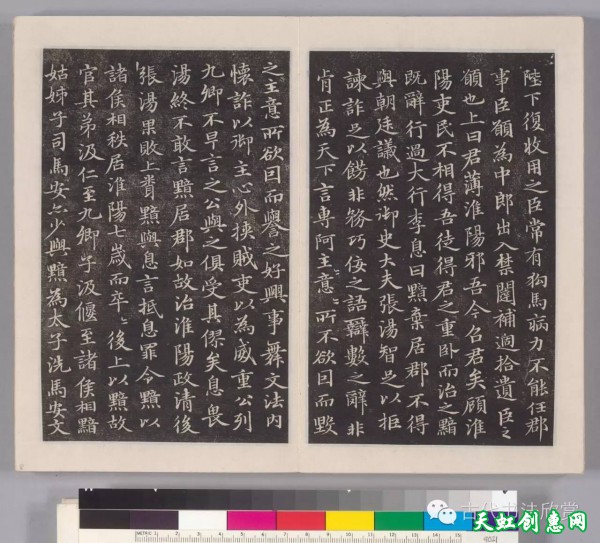 陛下復收用之臣常有狗馬病力不能任郡
事臣願為中郎出入禁闥補過拾遺臣之
願也上曰君薄淮陽邪吾今召君矣顧淮
陽吏民不相得吾徒得君之重臥而治之黯
既辭行過大行李息曰黯棄居郡不得
與朝廷議也然御史大夫張湯智足以拒
諫詐足以飾非務巧佞之語辯數之辭非
肯正為天下言專阿主意〻所不欲因而毀
之主意所欲因而譽之好興事舞文法內
懷詐以御主心外挾賊吏以為威重公列
九卿不早言之公與之俱受其僇矣息畏
湯終不敢言黯居郡如故治淮陽政清後
張湯果敗上聞黯與息言抵息罪令黯以
諸侯相秩居淮陽七歲而卒〻後上以黯故
官其弟汲仁至九卿子汲偃至諸侯相黯
姑姊子司馬安亦少與黯為太子洗馬安文
古代书法欣赏
天虹创惠网